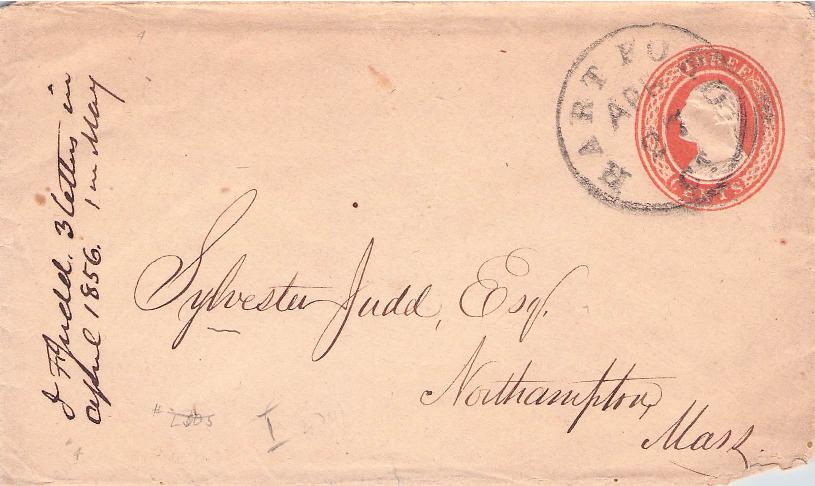 HARTFORD
APR
THREE
CENTS
J F Judd. 3 letters in
april 1856. 1 in May
Sylvester Judd, Esq.
Northampton,
Mass.